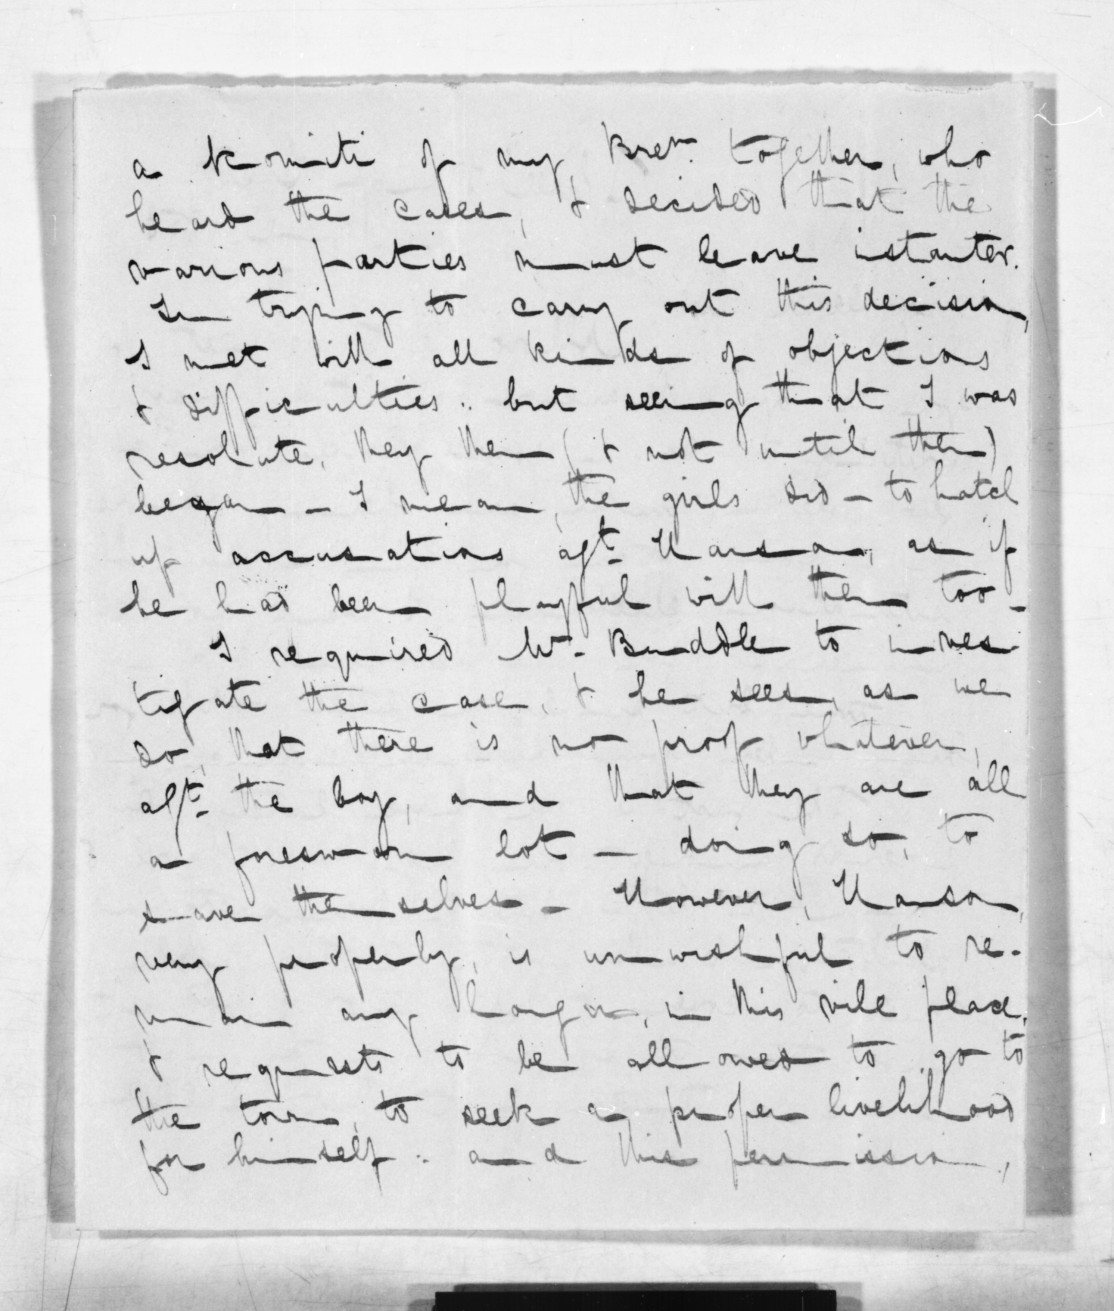 a Komiti of my Bren. together, who
heard the cases, & decided that the
various parties must leave instanter.
In trying to carry out this decision,
I met with all kinds of objections
& difficulties. but seeing that I was
resolute, they then (& not until then)
began – I mean, the girls did – to hatch
up accusations agt. as if
he had been playful with them too –
I required Mr. Buddle to inves
tigate the case, & he sees, as we
do, that there is no proof whatever,
agt. the boy, and that they are all
a foresworn lot – doing so, to
save themselves – However,
very properly, is unwishful to re-
main any longer, in this vile place,
& requests to be allowed to go to
the town, to seek a proper livelihood
for himself. and this permission,